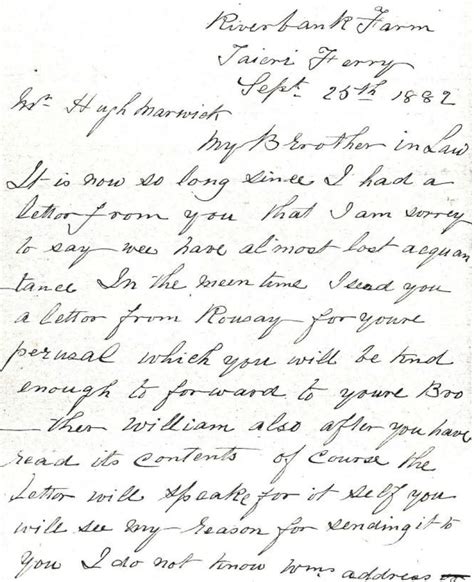 Riverbank Farm
Taieri Ferry
Sept. 25th 1882
Mr Hugh Marwick
My Brother in Law
It is now so long since I had a
letter from you that I am sorrey
to say wee have almost lost acquan
tance In the meen time I send you
a letter from Rousay for youre
perusal which you will be kind
enough to forward to youre Bro
ther William also after you have
read its contents of Course the
Letter will speake for it self you
will see my reason for sending it to
you I do not know wms address